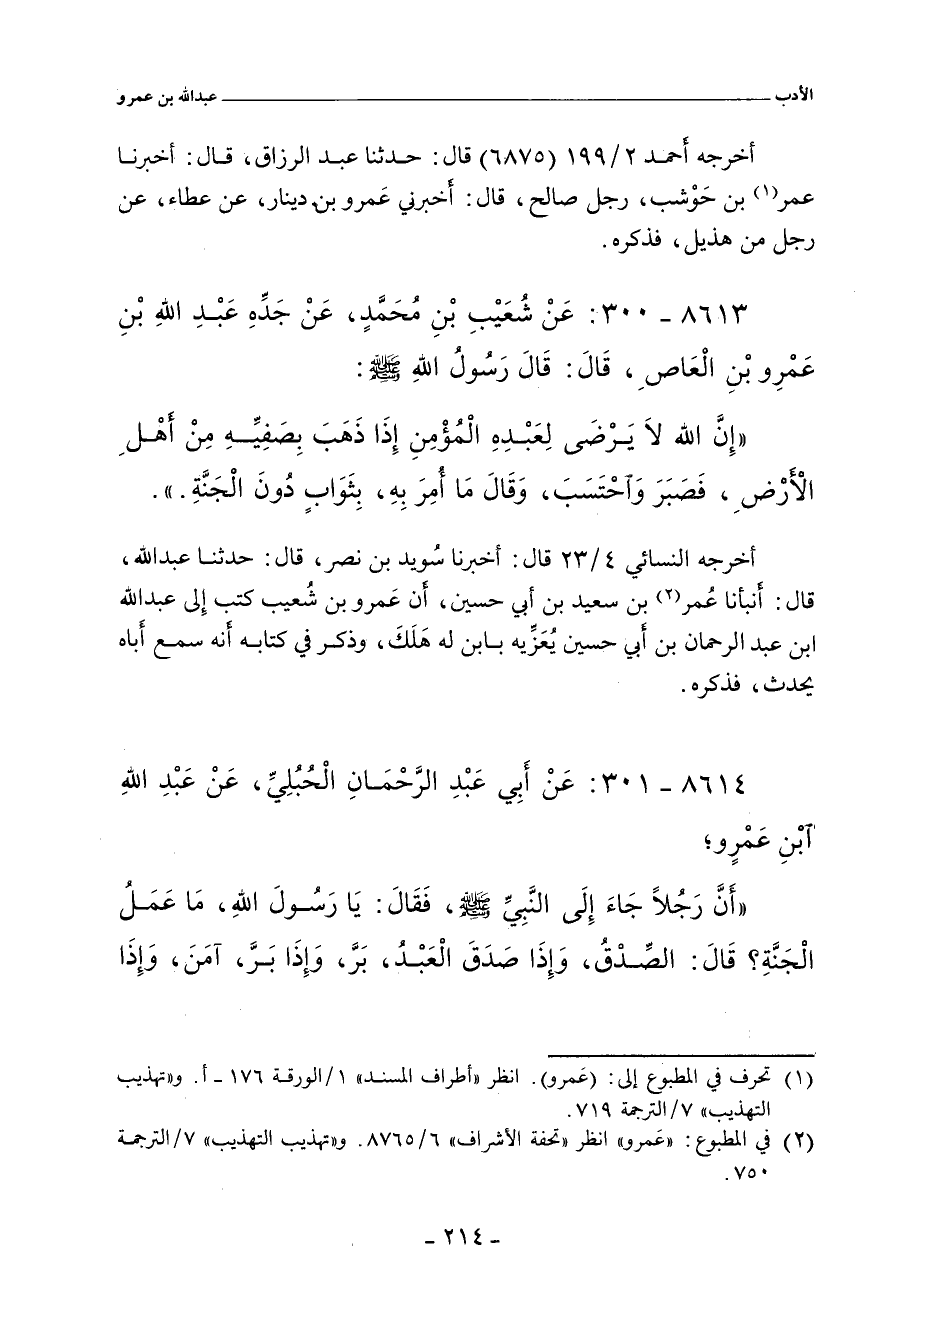 الأدب ــــــــــــــ عبدالله بن عمرو
أخرجه أَحمد ٢/ ١٩٩ (٦٨٧٥) قال: حدثنا عبد الرزاق، قال: أخبرنا
عمر(١) بن حَوْشب، رجل صالح، قال: أَخبرني عَمرو بن دينار، عن عطاء، عن
رجل من هذيل، فذكره.
٨٦١٣ ـ ٣٠٠: عَنْ شُعَيْبِ بْنِ مُحَمَّدٍ، عَنْ جَدِّهِ عَبْدِ اللهِ بْنِ
عَمْرِو بْنِ الْعَاصِ، قَالَ: قَالَ رَسُولُ اللهِ ﷺ:
«إِنَّ الله لاَ يَرْضَى لِعَبْدِهِ الْمُؤْمِنِ إِذَا ذَهَبَ بِصَفِيِّهِ مِنْ أَهْلِ
الْأَرْضِ، فَصَبَرَ وَآحْتَسَبَ، وَقَالَ مَا أُمِرَ بِهِ، بِثَوَابٍ دُونَ الْجَنَّةِ.».
أخرجه النسائي ٤/ ٢٣ قال: أخبرنا سُويد بن نصر، قال: حدثنا عبدالله،
قال: أَنبأنا عُمر(٢) بن سعيد بن أَبي حسين، أَن عَمرو بن شُعيب كتب إِلى عبدالله
ابن عبد الرحمان بن أَبي حسين يُعَزِّيه بابن له هَلَكَ، وذكر في كتابه أنه سمع أَباه
يحدث، فذكره.
٨٦١٤ ـ ٣٠١: عَنْ أَبِي عَبْدِ الرَّحْمَانِ الْحُبُلِيِّ، عَنْ عَبْدِ اللهِ
آبْنِ عَمْرٍو؛
«أَنَّ رَجُلاً جَاءَ إِلَى النَّبِيِّ ﷺ، فَقَالَ: يَا رَسُولَ اللهِ، مَا عَمَلُ
الْجَنَّةِ؟ قَالَ: الصِّدْقُ، وَإِذَا صَدَقَ الْعَبْدُ، بَرَّ، وَإِذَا بَرَّ، آمَنَ، وَإِذَا
(١) تحرف في المطبوع إلى: (عَمرو). انظر «أطراف المسند» ١/الورقة ١٧٦ ـ أ. و«تهذيب
التهذيب» ٧/الترجمة ٧١٩.
(٢) في المطبوع: «عَمرو» انظر «تحفة الأشراف» ٦/ ٨٧٦٥. و«تهذيب التهذيب» ٧/الترجمة
٧٥٠.
ـ ٢١٤ ـ